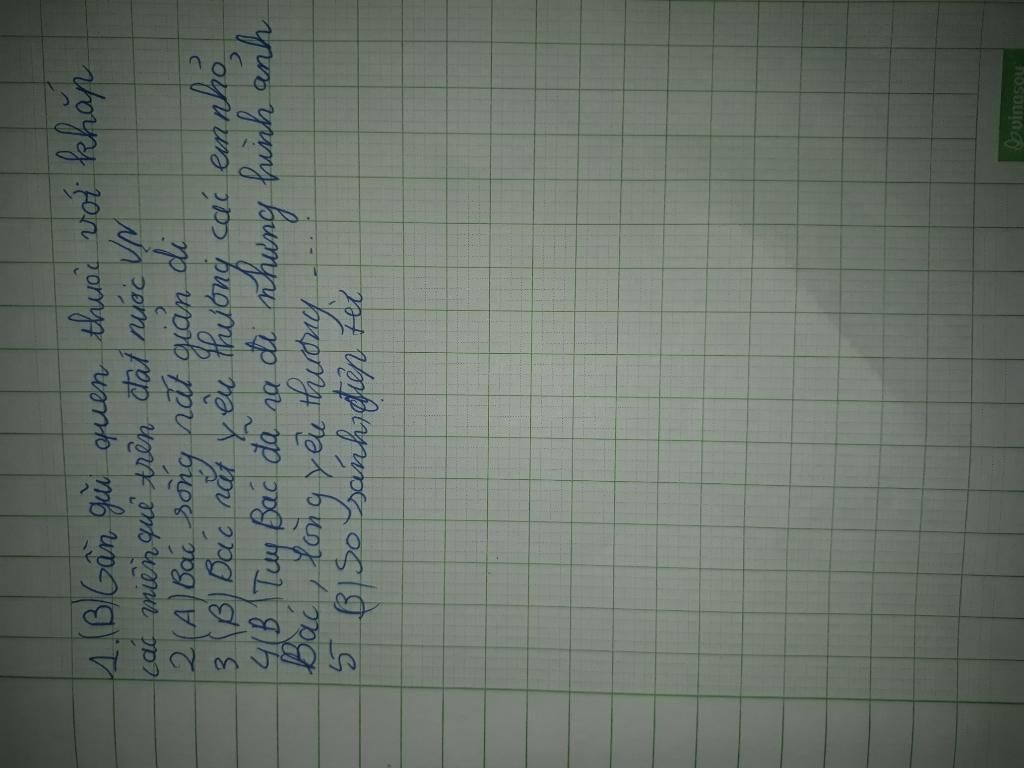 1.(B)Gần gũi quen thuôc với khắp
các miền quê trên đất nước VN
2(A)Bác sống rất giản dị
3(B)Bác rất yêu thương các em nhỏ
4)B(Tuy Bác đã ra đi nhưng hình ảnh
Bác, lòng yêu thương ....
5 (B)So sánh, đẹp